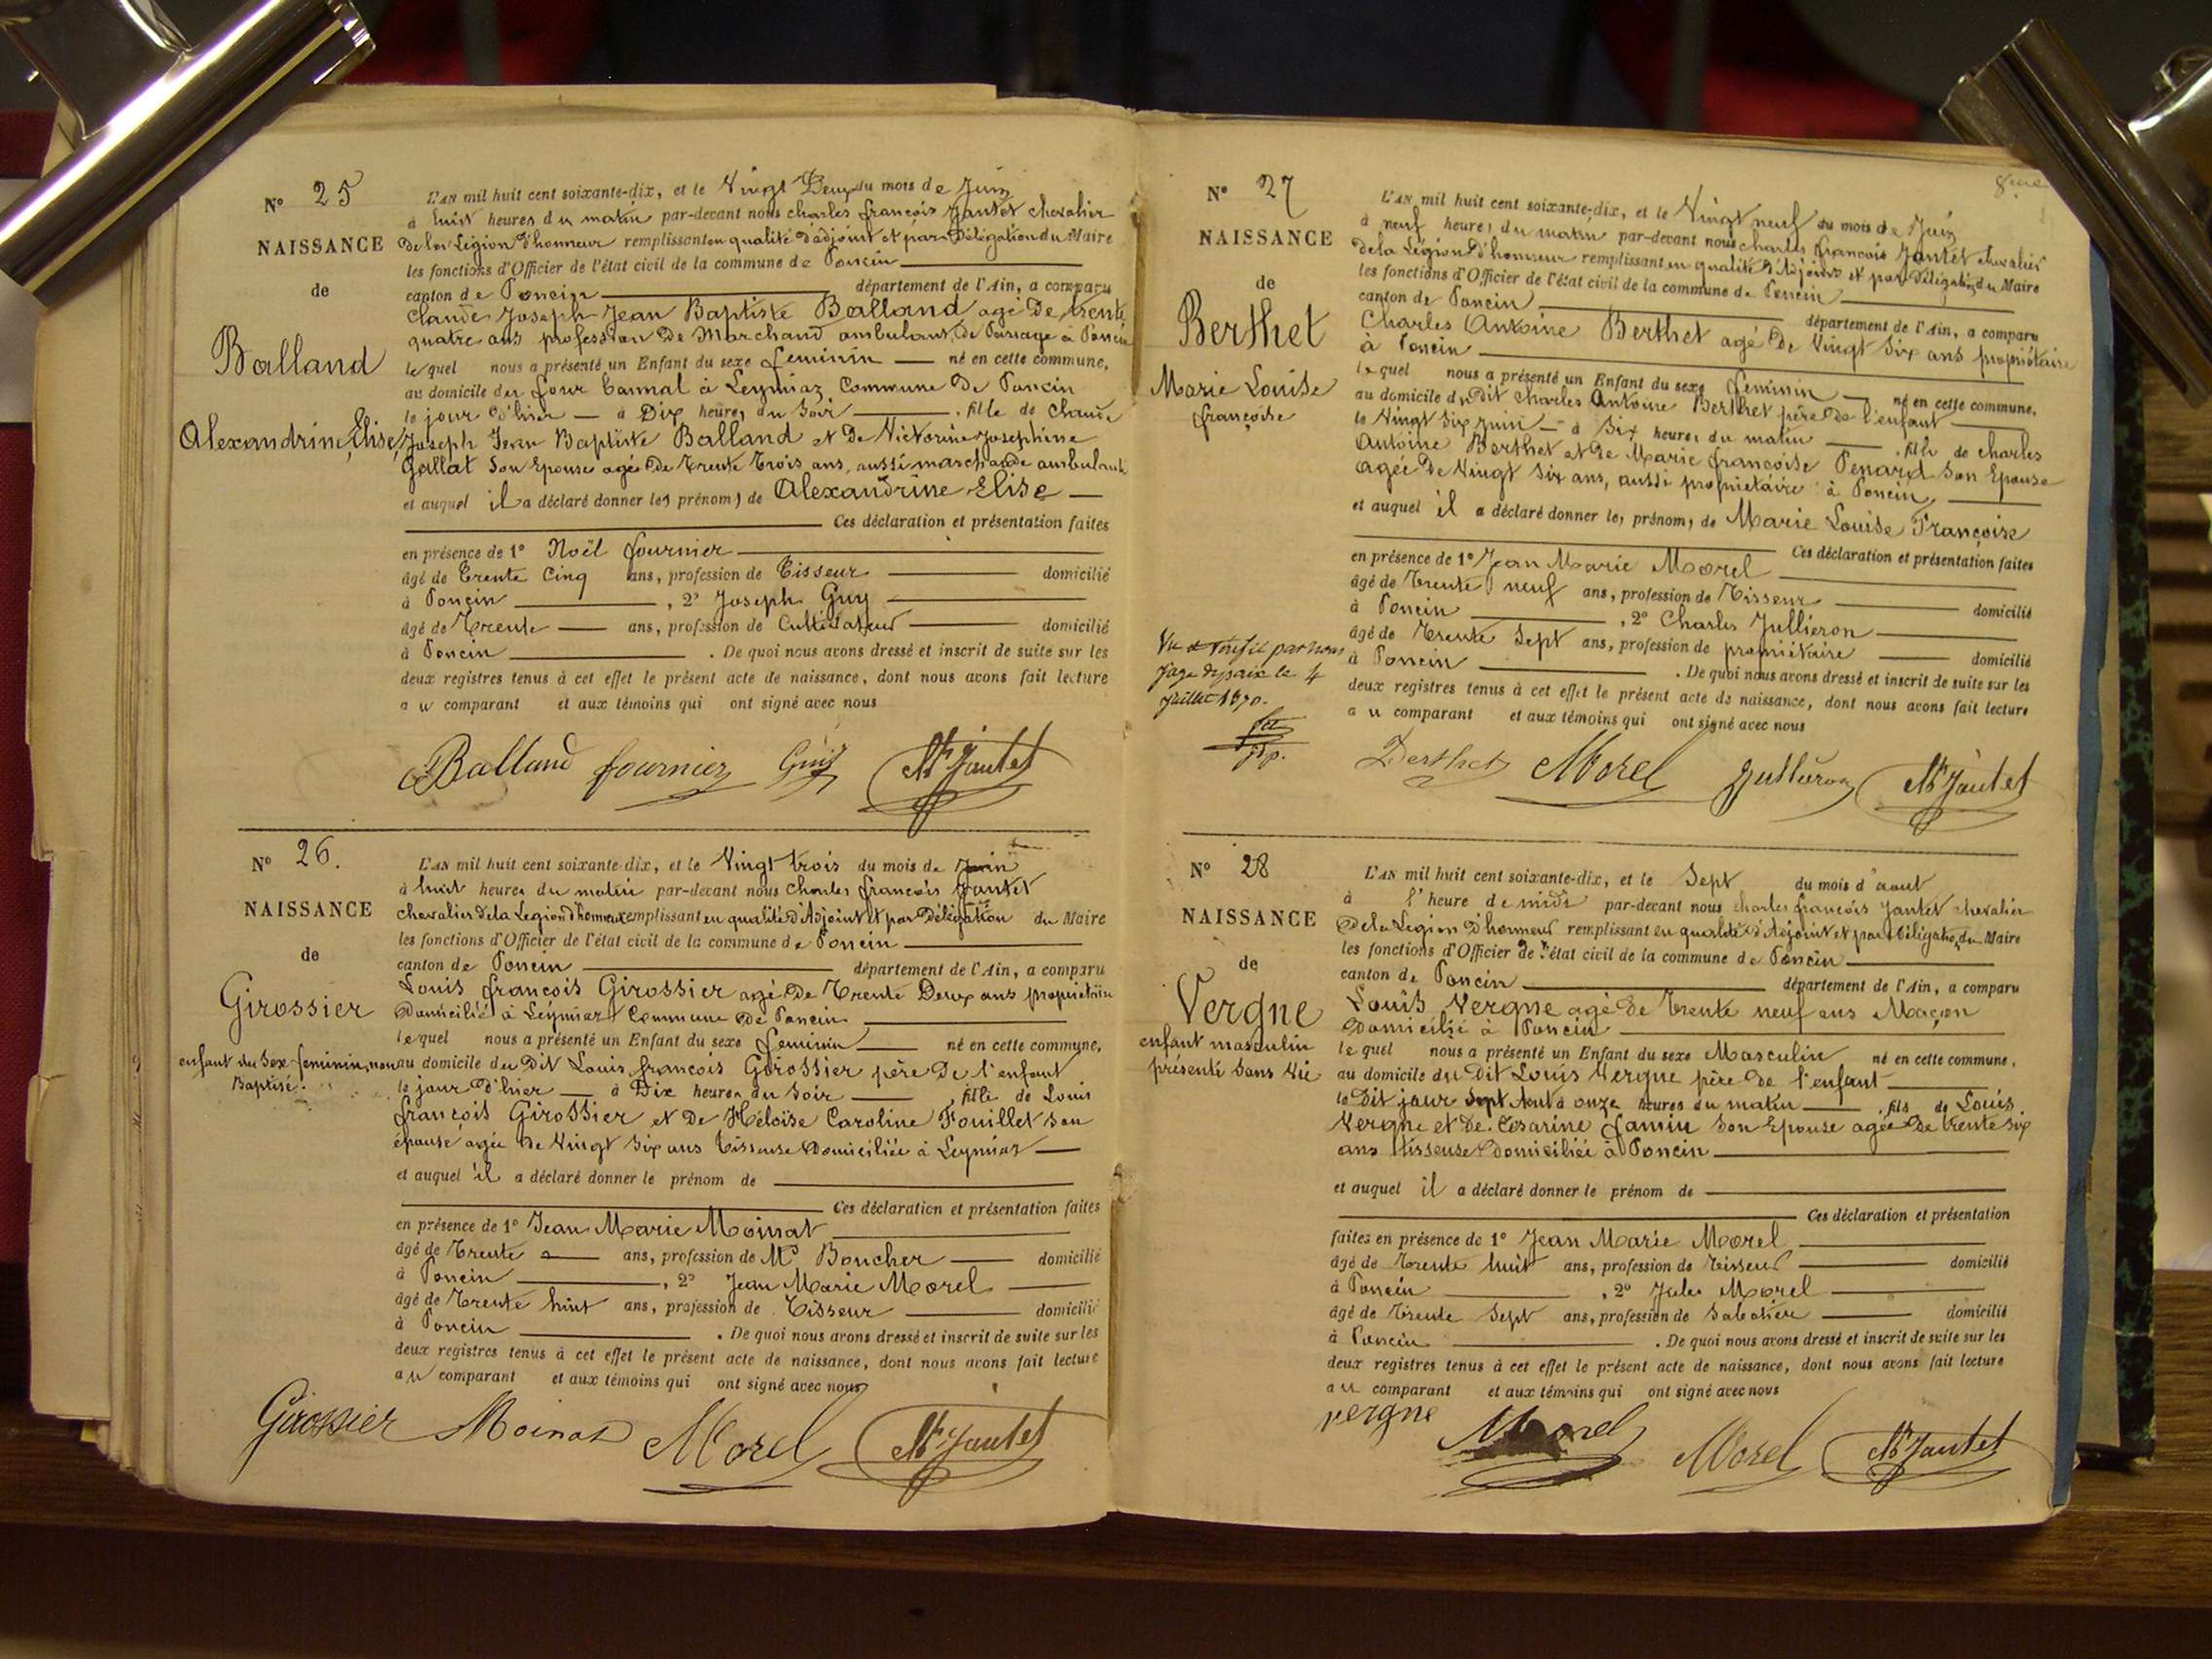 N° 25
NAISSANCE
de
Balland
Alexandrine, Elise,
L'AN mil huit cent soixante-dix, et le Vingt Deux du mois de Juin
à huit heures du matin par-devant nous Charles françois Jantet chevalier
De la Légion d'honneur remplissant en qualité d'adjoint et par Délégation du Maire
les fonctions d'Officier de l'état civil de la commune de Poncin
canton de Poncin département de l'Ain, a comparu
Claude Joseph Jean Baptiste Balland agé De trente
quatre ans profession De Marchand ambulant, De Passage à Poncin
lequel nous a présenté un Enfant du sexe feminin né en cette commune,
au domicile du four à Leymiaz Commune De Poncin
le jour d'hier à Dix heures du Soir . fille de Claude
Joseph Jean Baptiste Balland et De Victorine Josephine
Gallat Son Epouse agée De Trente Trois ans, aussi marchande ambulante
et auquel il a déclaré donner les prénoms de Alexandrine Elise
Ces déclaration et présentation faites
en présence de 1° Noël fournier
âgé de Trente Cinq ans, profession de Tisseur domicilié
à Poncin , 2° Joseph Guy
âgé de Trente ans, profession de Cultivateur domicilié
à Poncin . De quoi nous avons dressé et inscrit de suite sur les
deux registres tenus à cet effet le présent acte de naissance, dont nous avons fait lecture
au comparant et aux témoins qui ont signé avec nous
Balland fournier Guy Jantet
N° 26.
NAISSANCE
de
Girossier
enfant du Sex feminin, non
Baptisé.
L'AN mil huit cent soixante-dix, et le Vingt trois du mois de Juin
à huit heures du matin par-devant nous Charles françois Jantet
chevalier De la Legion d'honneur remplissant en qualité D'Adjoint et par Délégation du Maire
les fonctions d'Officier de l'état civil de la commune de Poncin
canton de Poncin département de l'Ain, a comparu
Louis françois Girossier agé De Trente Deux ans proprietaire
Domicilié à Leymiaz Commune De Poncin
lequel nous a présenté un Enfant du sexe feminin né en cette commune,
au domicile du Dit Louis françois Girossier père De l'enfant
le jour D'hier à Dix heures du Soir , fille de Louis
françois Girossier et De Héloïse Caroline Fouillet son
épouse agée De Vingt Six ans Tisseuse Domiciliée à Leymiaz
et auquel il a déclaré donner le prénom de
Ces déclaration et présentation faites
en présence de 1° Jean Marie Moinat
âgé de Trente ans, profession de Md Boucher domicilié
à Poncin , 2° Jean Marie Morel
âgé de Trente huit ans, profession de Tisseur domicilié
à Poncin . De quoi nous avons dressé et inscrit de suite sur les
deux registres tenus à cet effet le présent acte de naissance, dont nous avons fait lecture
au comparant et aux témoins qui ont signé avec nous
Girossier Moinat Morel Jantet
N° 27
NAISSANCE
de
Berthet
Marie Louise
françoise
L'AN mil huit cent soixante-dix, et le Vingt neuf du mois de Juin
à neuf heures du matin par-devant nous Charles françois Jantet chevalier
de la Légion d'honneur remplissant en qualité d'Adjoint et par Délégation du Maire
les fonctions d'Officier de l'état civil de la commune de Poncin
canton de Poncin département de l'Ain, a comparu
Charles Antoine Berthet agé De Vingt Six ans propriétaire
à Poncin
lequel nous a présenté un Enfant du sexe feminin né en cette commune,
au domicile du Dit Charles Antoine Berthet père De l'enfant
le Vingt Six Juin à Six heures du matin . fille de Charles
Antoine Berthet et De Marie françoise Penard Son Epouse
agée De Vingt Six ans, aussi proprietaire à Poncin,
et auquel il a déclaré donner les prénoms de Marie Louise Françoise
Ces déclaration et présentation faites
en présence de 1° Jean Marie Morel
âgé de Trente neuf ans, profession de Tisseur domicilié
à Poncin , 2° Charles Jullieron
âgé de Trente Sept ans, profession de propriétaire domicilié
à Poncin . De quoi nous avons dressé et inscrit de suite sur les
deux registres tenus à cet effet le présent acte de naissance, dont nous avons fait lecture
au comparant et aux témoins qui ont signé avec nous
Vu et vérifié par nous
Juge de paix le 4
juillet 1870.
Berthet Morel Jullieron Jantet
N° 28
NAISSANCE
de
Vergne
enfant masculin
présenté Sans Vie
L'AN mil huit cent soixante-dix, et le Sept du mois d'aout
à l'heure de midi par-devant nous Charles françois Jantet chevalier
De la Légion D'honneur remplissant en qualité d'Adjoint et par Délégation du Maire
les fonctions d'Officier de l'état civil de la commune de Poncin
canton de Poncin département de l'Ain, a comparu
Louis Vergne agé De trente neuf ans Maçon
Domicilié à Poncin
lequel nous a présenté un Enfant du sexe Masculin né en cette commune,
au domicile du Dit Louis Vergne père De l'enfant
le Dit jour Sept Aout à onze heures du matin . fils de Louis
Vergne et De Cesarine famin Son Epouse agée De trente Six
ans tisseuse Domiciliée à Poncin
et auquel il a déclaré donner le prénom de
Ces déclaration et présentation
faites en présence de 1° Jean Marie Morel
âgé de Trente huit ans, profession de Tisseur domicilié
à Poncin , 2° Jules Morel
âgé de Trente Sept ans, profession de Sabotier domicilié
à Poncin . De quoi nous avons dressé et inscrit de suite sur les
deux registres tenus à cet effet le présent acte de naissance, dont nous avons fait lecture
au comparant et aux témoins qui ont signé avec nous
vergne Morel Morel Jantet